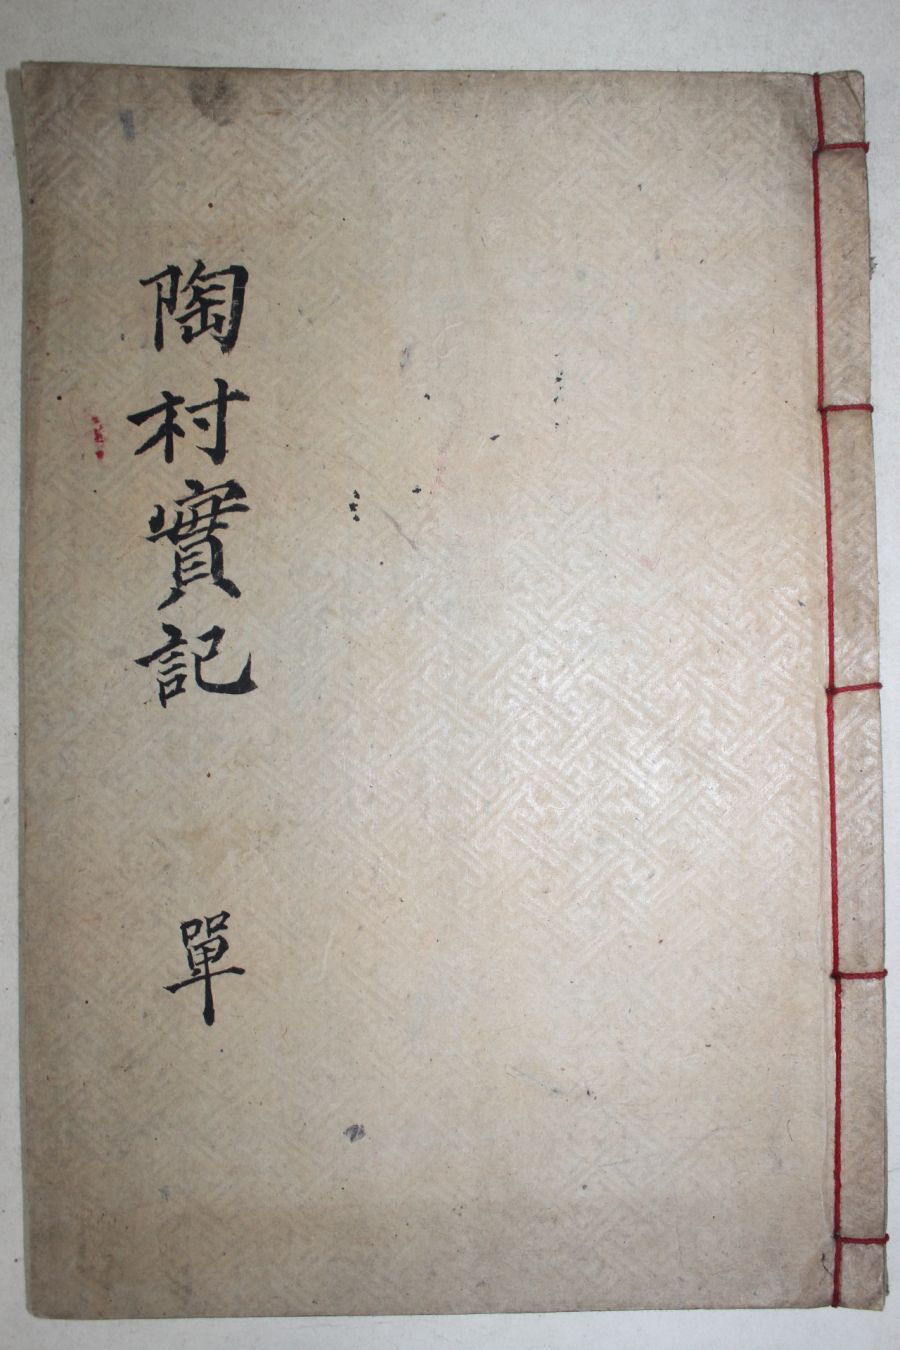 陶村實記
單